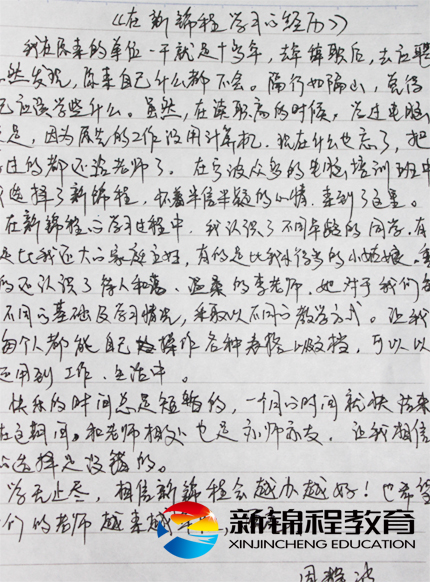 《在新锦程学习的经历》
我在原来的单位一干就是十多年，去年辞职后，去应聘
然发现，原来自己什么都不会。隔行如隔山，觉得
己应该学些什么。虽然，在读职高的时候，学过电脑
是，因为原先的工作没用计算机，现在什么也忘了，把
过的都还给老师了。在宁波众多的电脑培训班中
选择了新锦程，怀着半信半疑的心情，来到了这里。
在新锦程的学习过程中，我认识了不同年龄的同学，有
是比我还大的家庭主妇，有的是比我小得多的小姑娘。
的还认识了待人和蔼、温柔的李老师，她对于我们
不同的基础及学习情况，采取以不同的教学方式。让我
每个人都能自己操作各种表格以及文档，可以
运用到工作、生活中。
快乐的时间总是短暂的，一个月的时间就快结束
在这期间。和老师相处也是亦师亦友，让我相信
的选择是没错的。
学无止尽，相信新锦程会越办越好！也希望
们的老师越来越
新锦程教育
XINJINCHENG EDUCATION